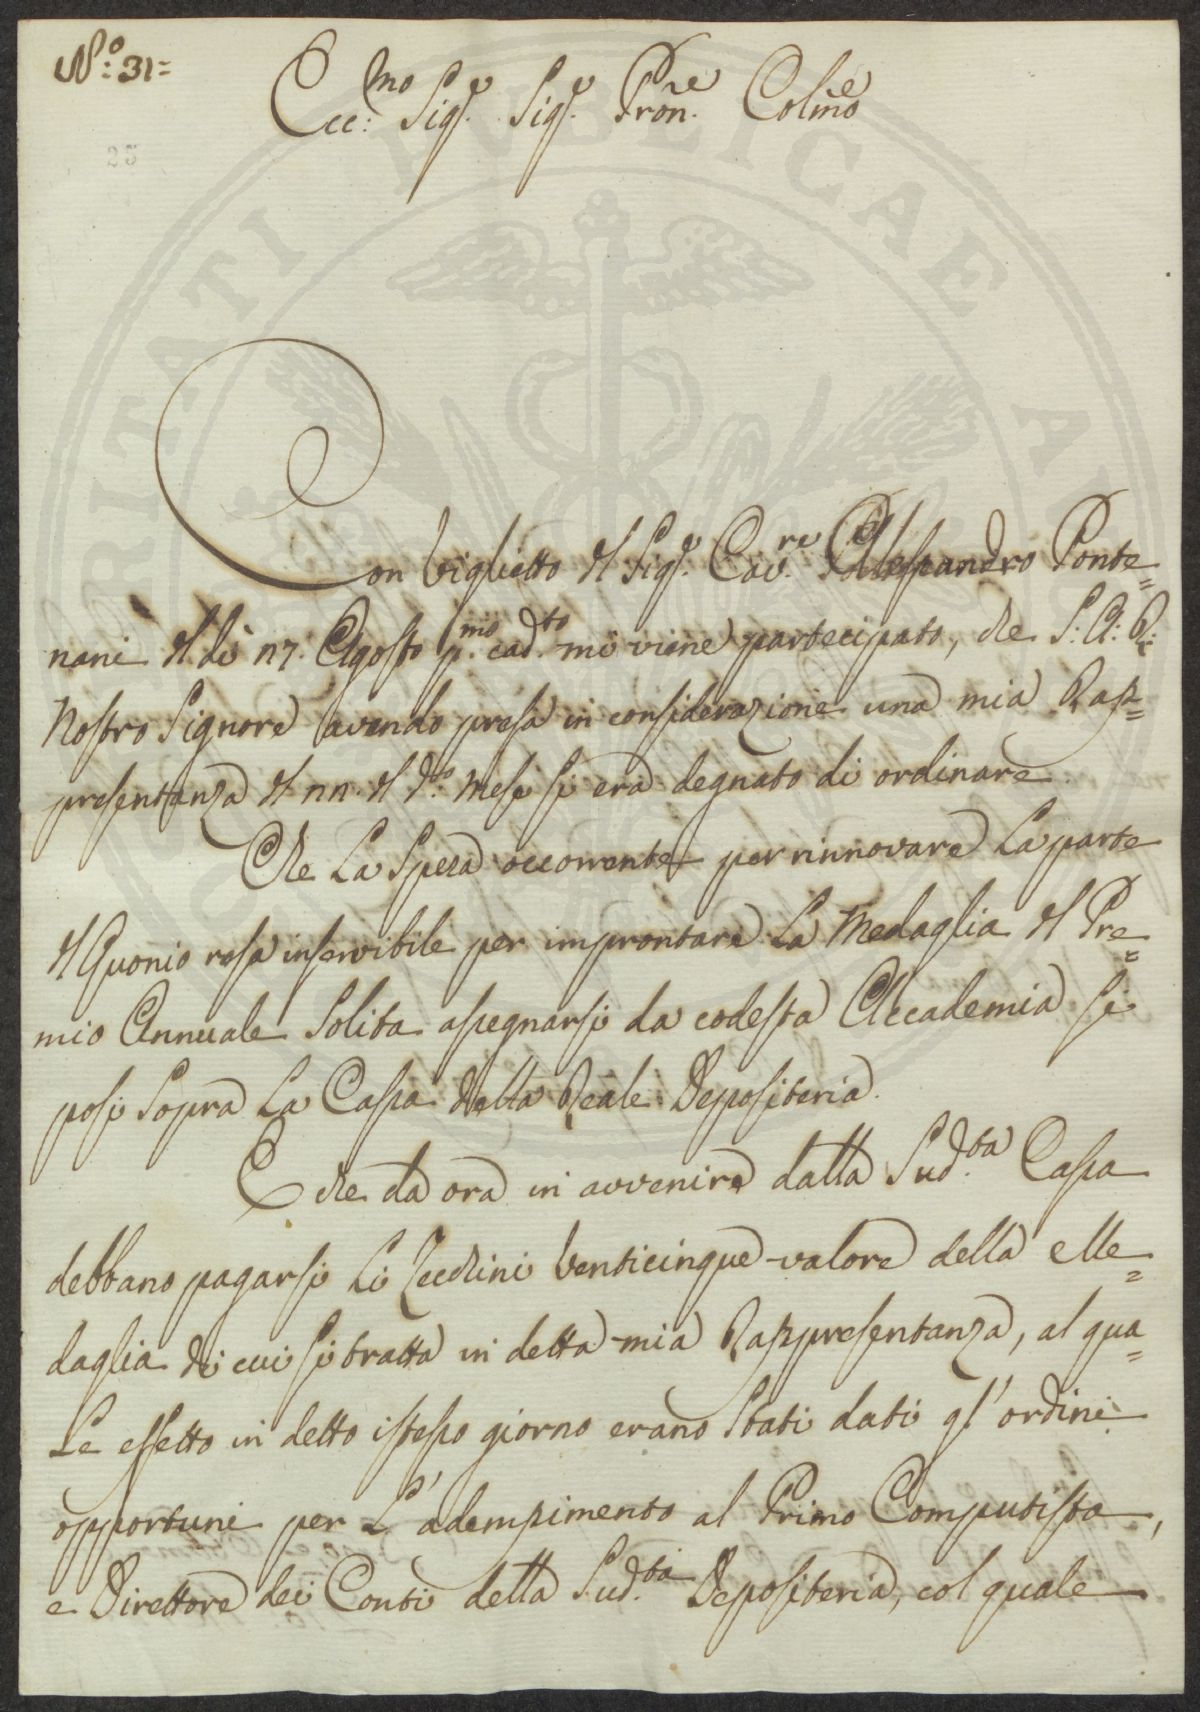 N.o 31=
25
Ecc.mo Sig.e Sig.e Pron.e Colmo
Con biglietto del Sig.e Cav.re Alessandro Ponte=
nani del dì 27. Agosto p.mo cad.to mi viene partecipato, che S: A: R:
Nostro Signore avendo presa in considerazione una mia Rap=
presentanza del 22. del d.o Mese si era degnato di ordinare
Che La Spesa occorrente per rinnovare La parte
del Quonio resa inservibile per improntare La Medaglia del Pre=
mio Annuale Solita assegnarsi da codesta Accademia si
posi Sopra La Cassa della Reale Depositeria.
E che da ora in avvenire dalla Sud.ta Cassa
debbano pagarsi Li Zecchini Venticinque valore della Me=
daglia di cui si tratta in detta mia Rappresentanza, al qua=
Le effetto in detto istesso giorno erano Stati dati gl'ordini
opportuni per L'adempimento al Primo Computista,
e Direttore dei Conti della Sud.ta Depositeria, col quale
PUBLICAE